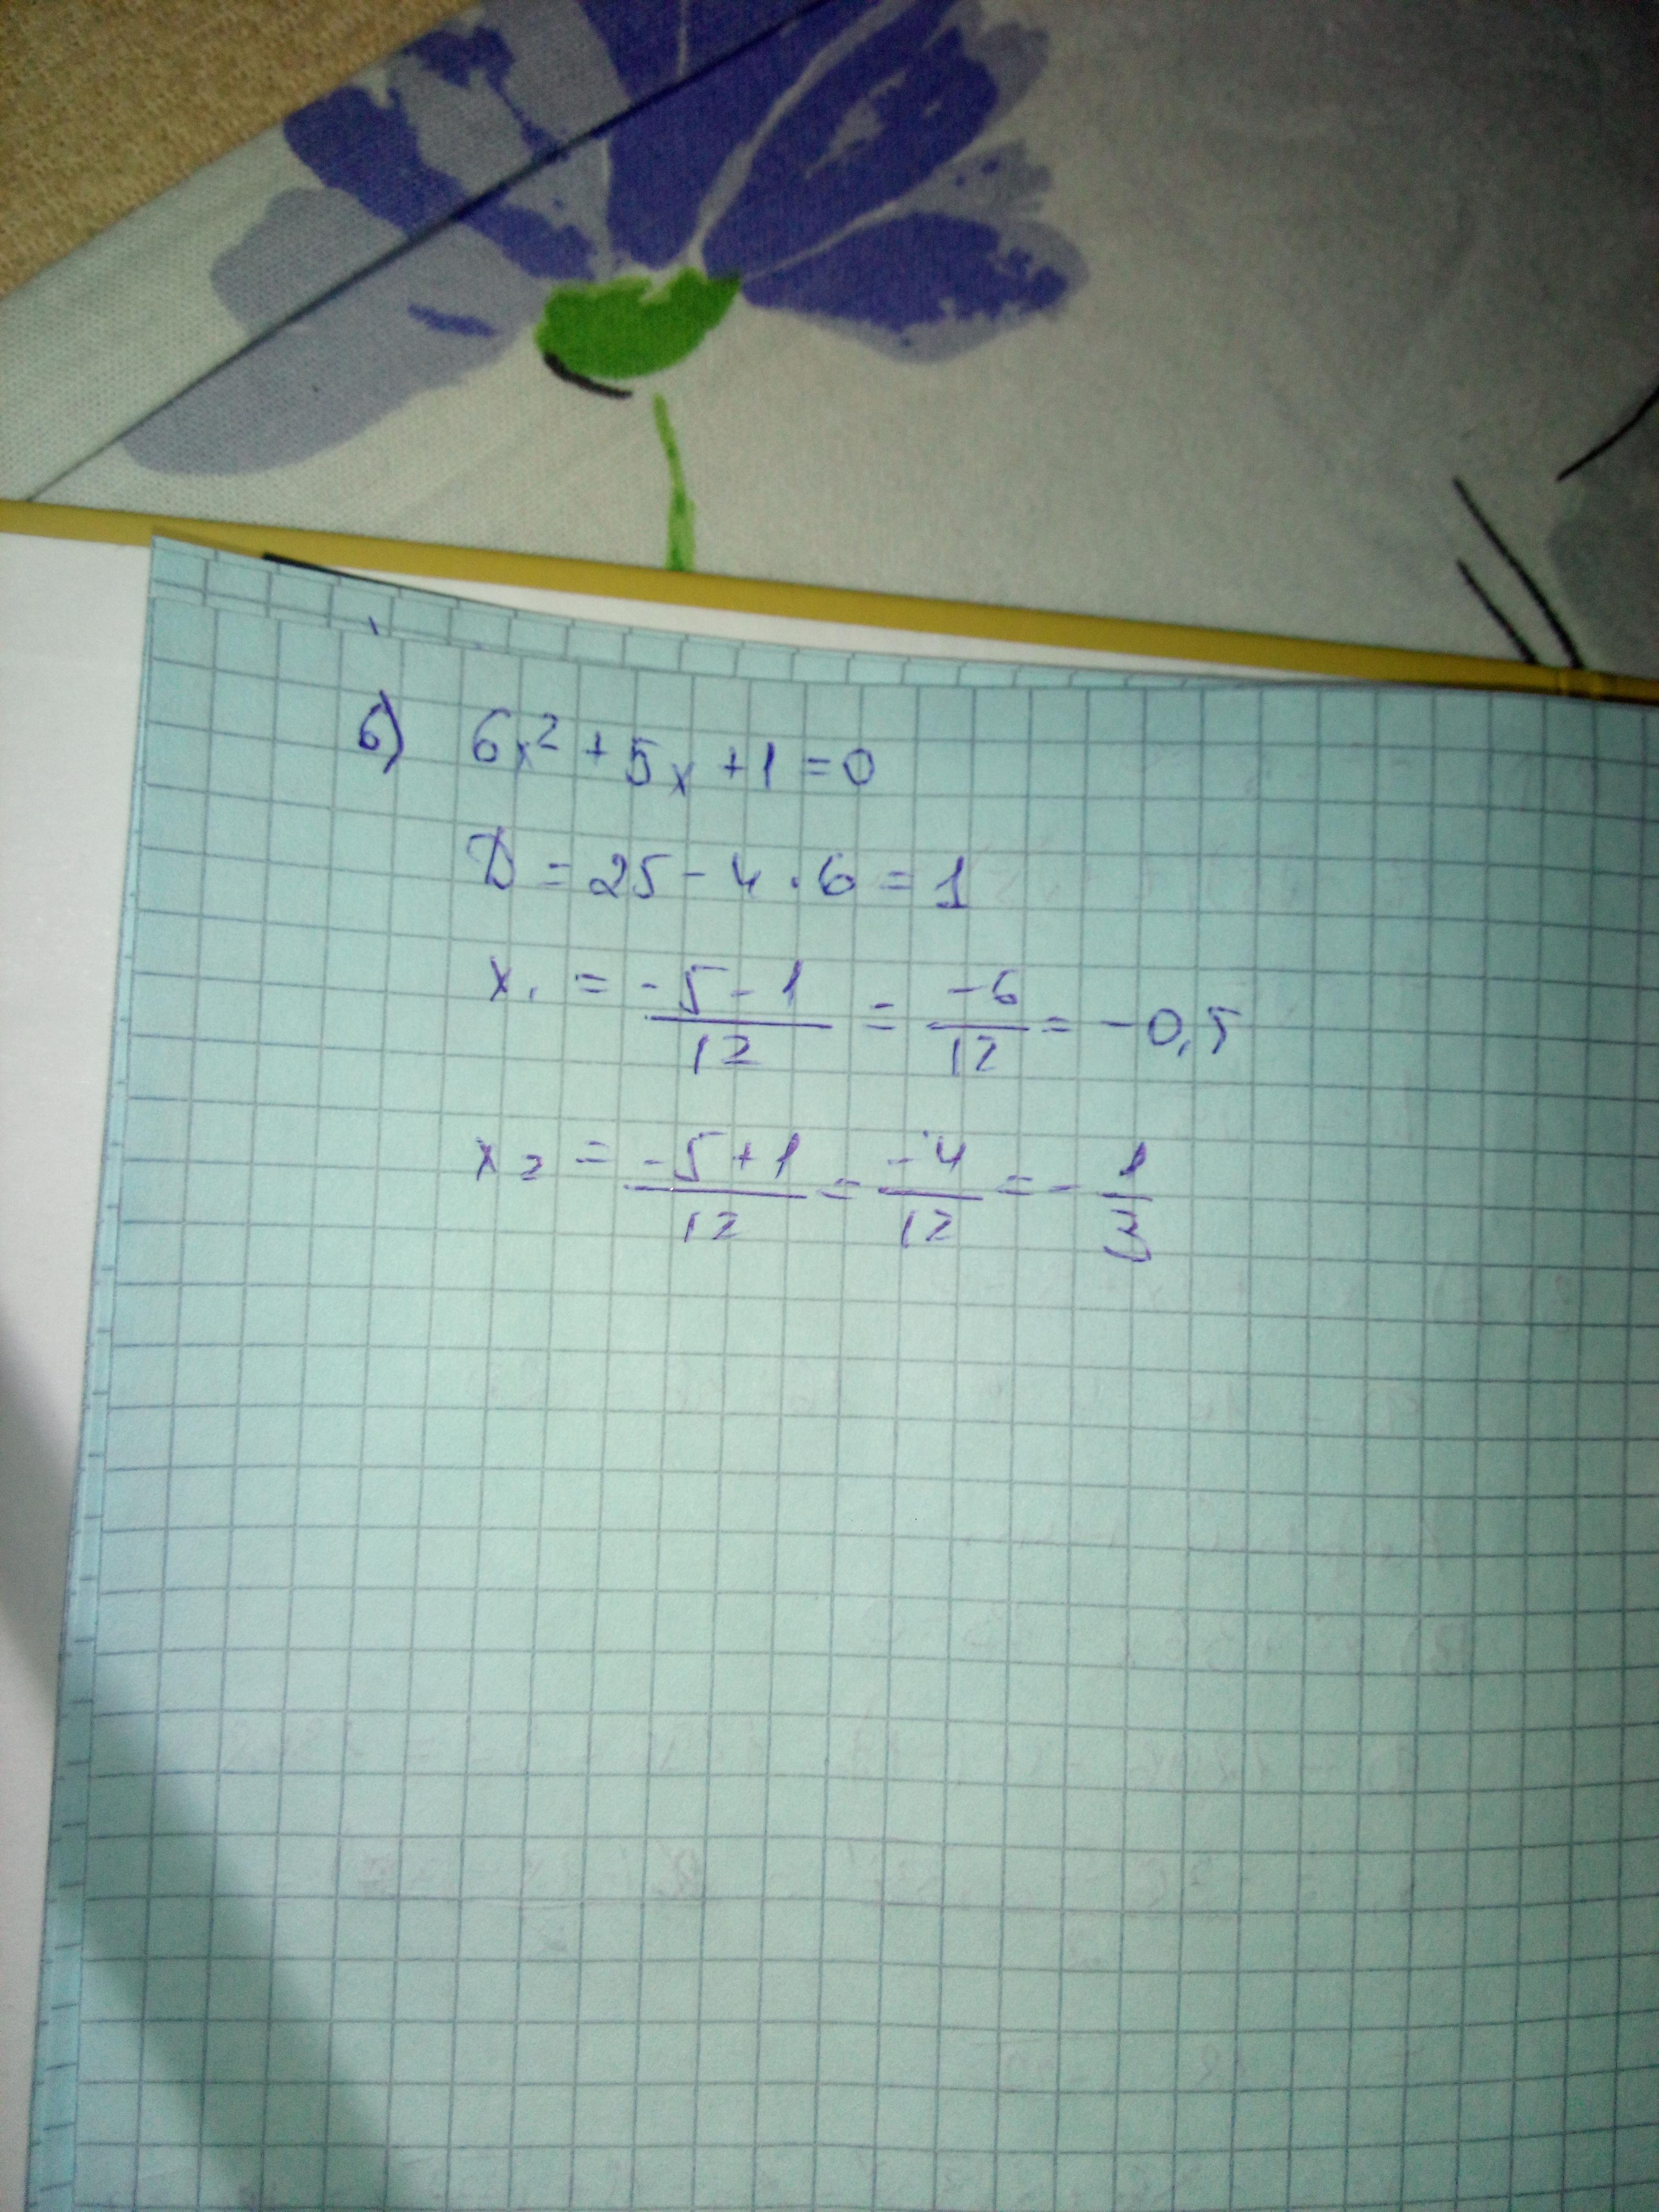 б) 6x² + 5x + 1 = 0
D = 25 - 4 · 6 = 1
x₁ = (-5 - 1)/12 = -6/12 = -0,5
x₂ = (-5 + 1)/12 = -4/12 = -1/3